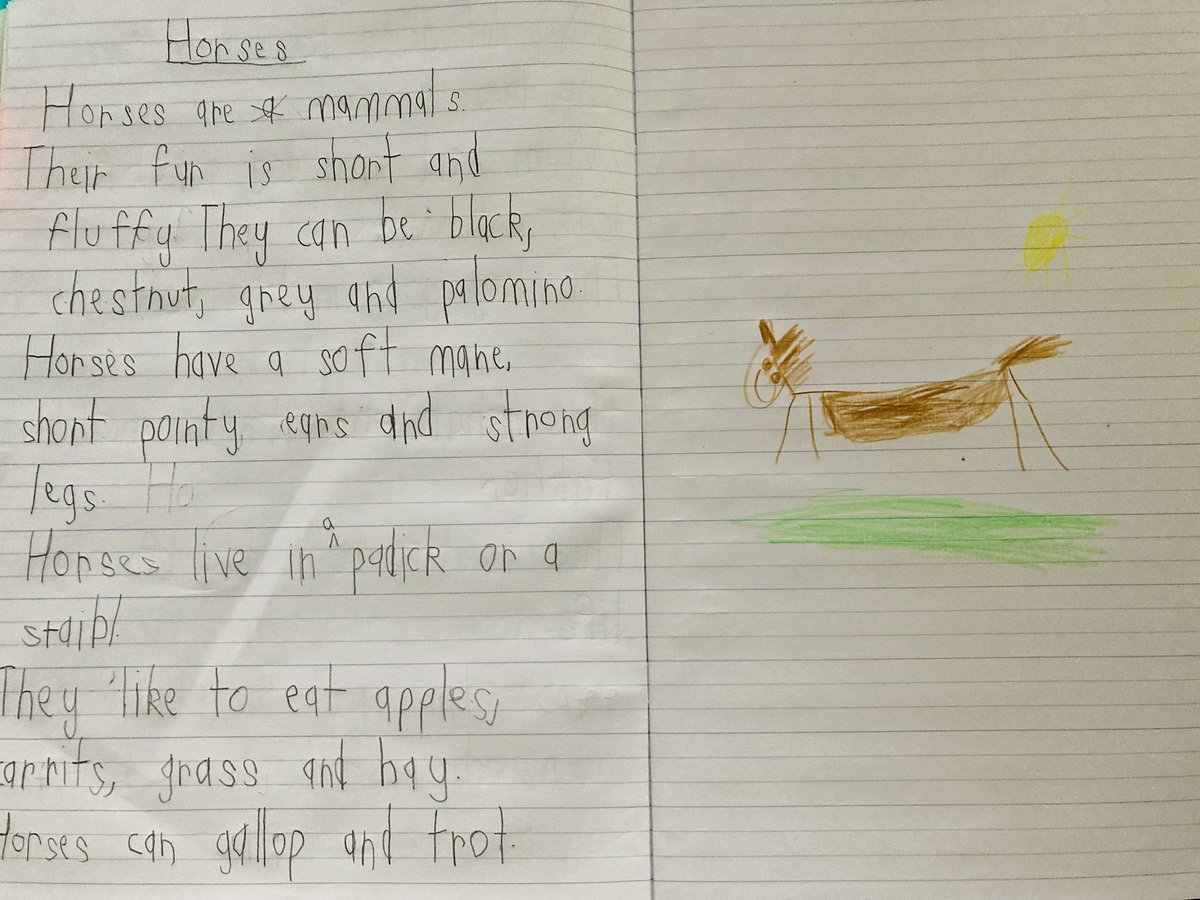 Horses
Horses are mammals.
Their fur is short and
fluffy. They can be black,
chestnut, grey and palomino.
Horses have a soft mane,
short pointy ears and strong
legs. Ho
Horses live in a padick or a
staibl.
They like to eat apples,
carrits, grass and hay.
Horses can gallop and trot.